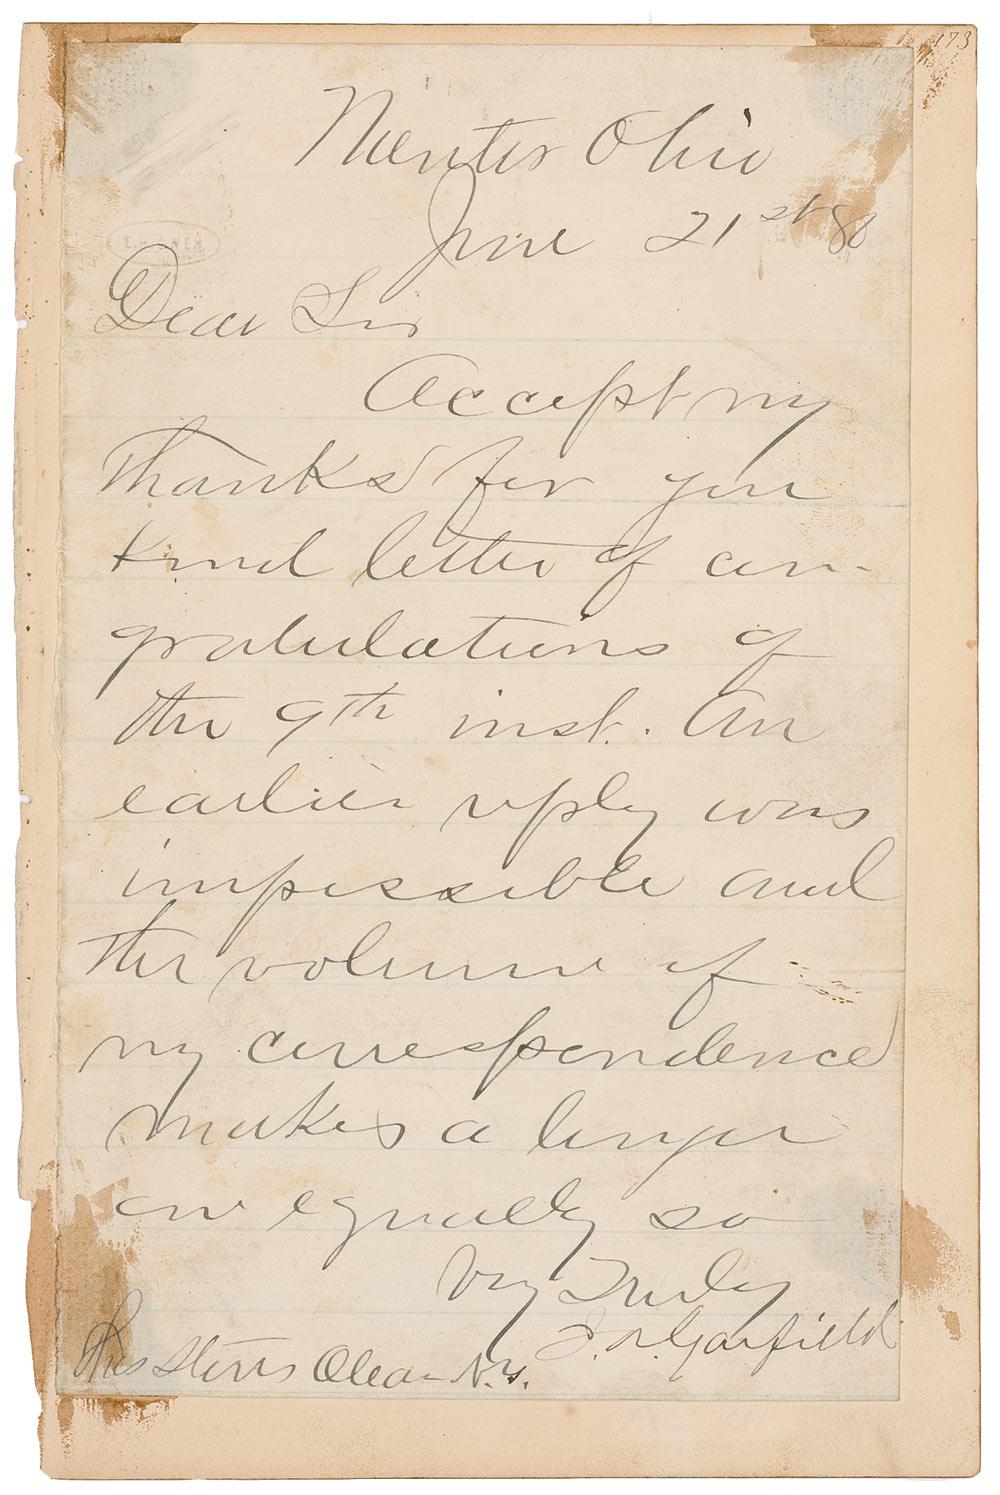 173
Mentor Ohio
June 21st 80
Dear Sir
Accept my
thanks for your
kind letter of con-
gratulations of
the 9th inst. An
earlier reply was
impossible and
the volume of
my correspondence
makes a longer
one equally so
Very Truly
J. A. Garfield
Stevens Olean N.Y.